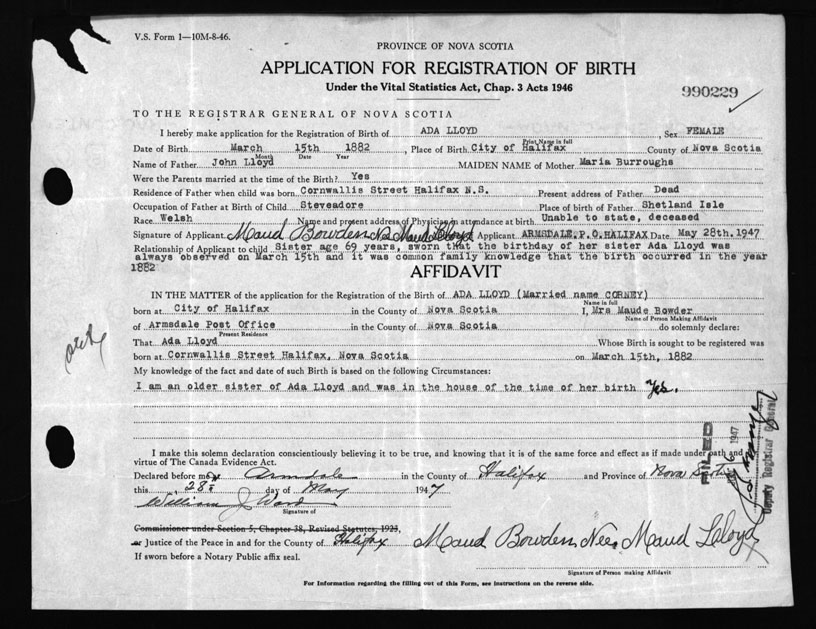 V.S. Form 1—10M-8-46.
PROVINCE OF NOVA SCOTIA
APPLICATION FOR REGISTRATION OF BIRTH
Under the Vital Statistics Act, Chap. 3 Acts 1946
990229
TO THE REGISTRAR GENERAL OF NOVA SCOTIA
I hereby make application for the Registration of Birth of ADA LLOYD, Sex FEMALE
Print Name in full
Date of Birth March 15th 1882, Place of Birth City of Halifax County of Nova Scotia
Month Date Year
Name of Father John Lloyd MAIDEN NAME of Mother Maria Burroughs
Were the Parents married at the time of the Birth? Yes
Residence of Father when child was born Cornwallis Street Halifax N.S. Present address of Father Dead
Occupation of Father at Birth of Child Steveadore Place of birth of Father Shetland Isle
Race Welsh Name and present address of Physician in attendance at birth Unable to state, deceased
Signature of Applicant Maud Bowden Nee Maud Lloyd Applicant ARMSDALE.P.O.HALIFAX Date May 28th.1947
Relationship of Applicant to child Sister age 69 years, sworn that the birthday of her sister Ada Lloyd was
always observed on March 15th and it was common family knowledge that the birth occurred in the year
1882
AFFIDAVIT
IN THE MATTER of the application for the Registration of the Birth of ADA LLOYD (Married name CORNEY)
Name in full
born at City of Halifax in the County of Nova Scotia I, Mrs Maude Bowder
Name of Person Making Affidavit
of Armsdale Post Office in the County of Nova Scotia do solemnly declare:
Present Residence
That Ada Lloyd Whose Birth is sought to be registered was
born at Cornwallis Street Halifax, Nova Scotia on March 15th, 1882
My knowledge of the fact and date of such Birth is based on the following Circumstances:
I am an older sister of Ada Lloyd and was in the house of the time of her birth Yes.
I make this solemn declaration conscientiously believing it to be true, and knowing that it is of the same force and effect as if made under oath and
virtue of The Canada Evidence Act.
Declared before me at Armdale in the County of Halifax and Province of Nova Scotia
this 28 day of May 1947
William J Ward
Signature of
Commissioner under Section 5, Chapter 38, Revised Statutes, 1923,
or Justice of the Peace in and for the County of Halifax
Maud Bowden Nee. Maud Lloyd
If sworn before a Notary Public affix seal.
Signature of Person making Affidavit
For Information regarding the filling out of this Form, see instructions on the reverse side.
FILED
6 1947
Deputy Registrar General